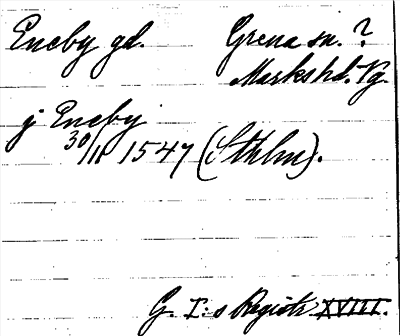 Eneby gd. Grena sn. ?
Markshd. Vg.
j Eneby
30/11 1547 (Sthlm).
G. I:s Registr. XVIII.